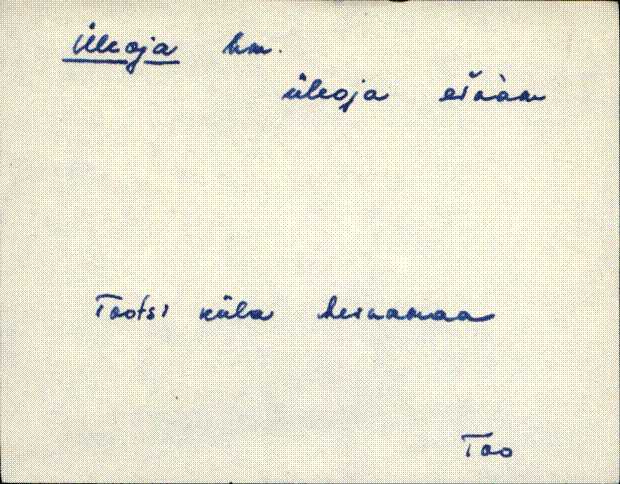 Üleoja hm.
üleoja einàm
Tootsi küla heinamaa
Too